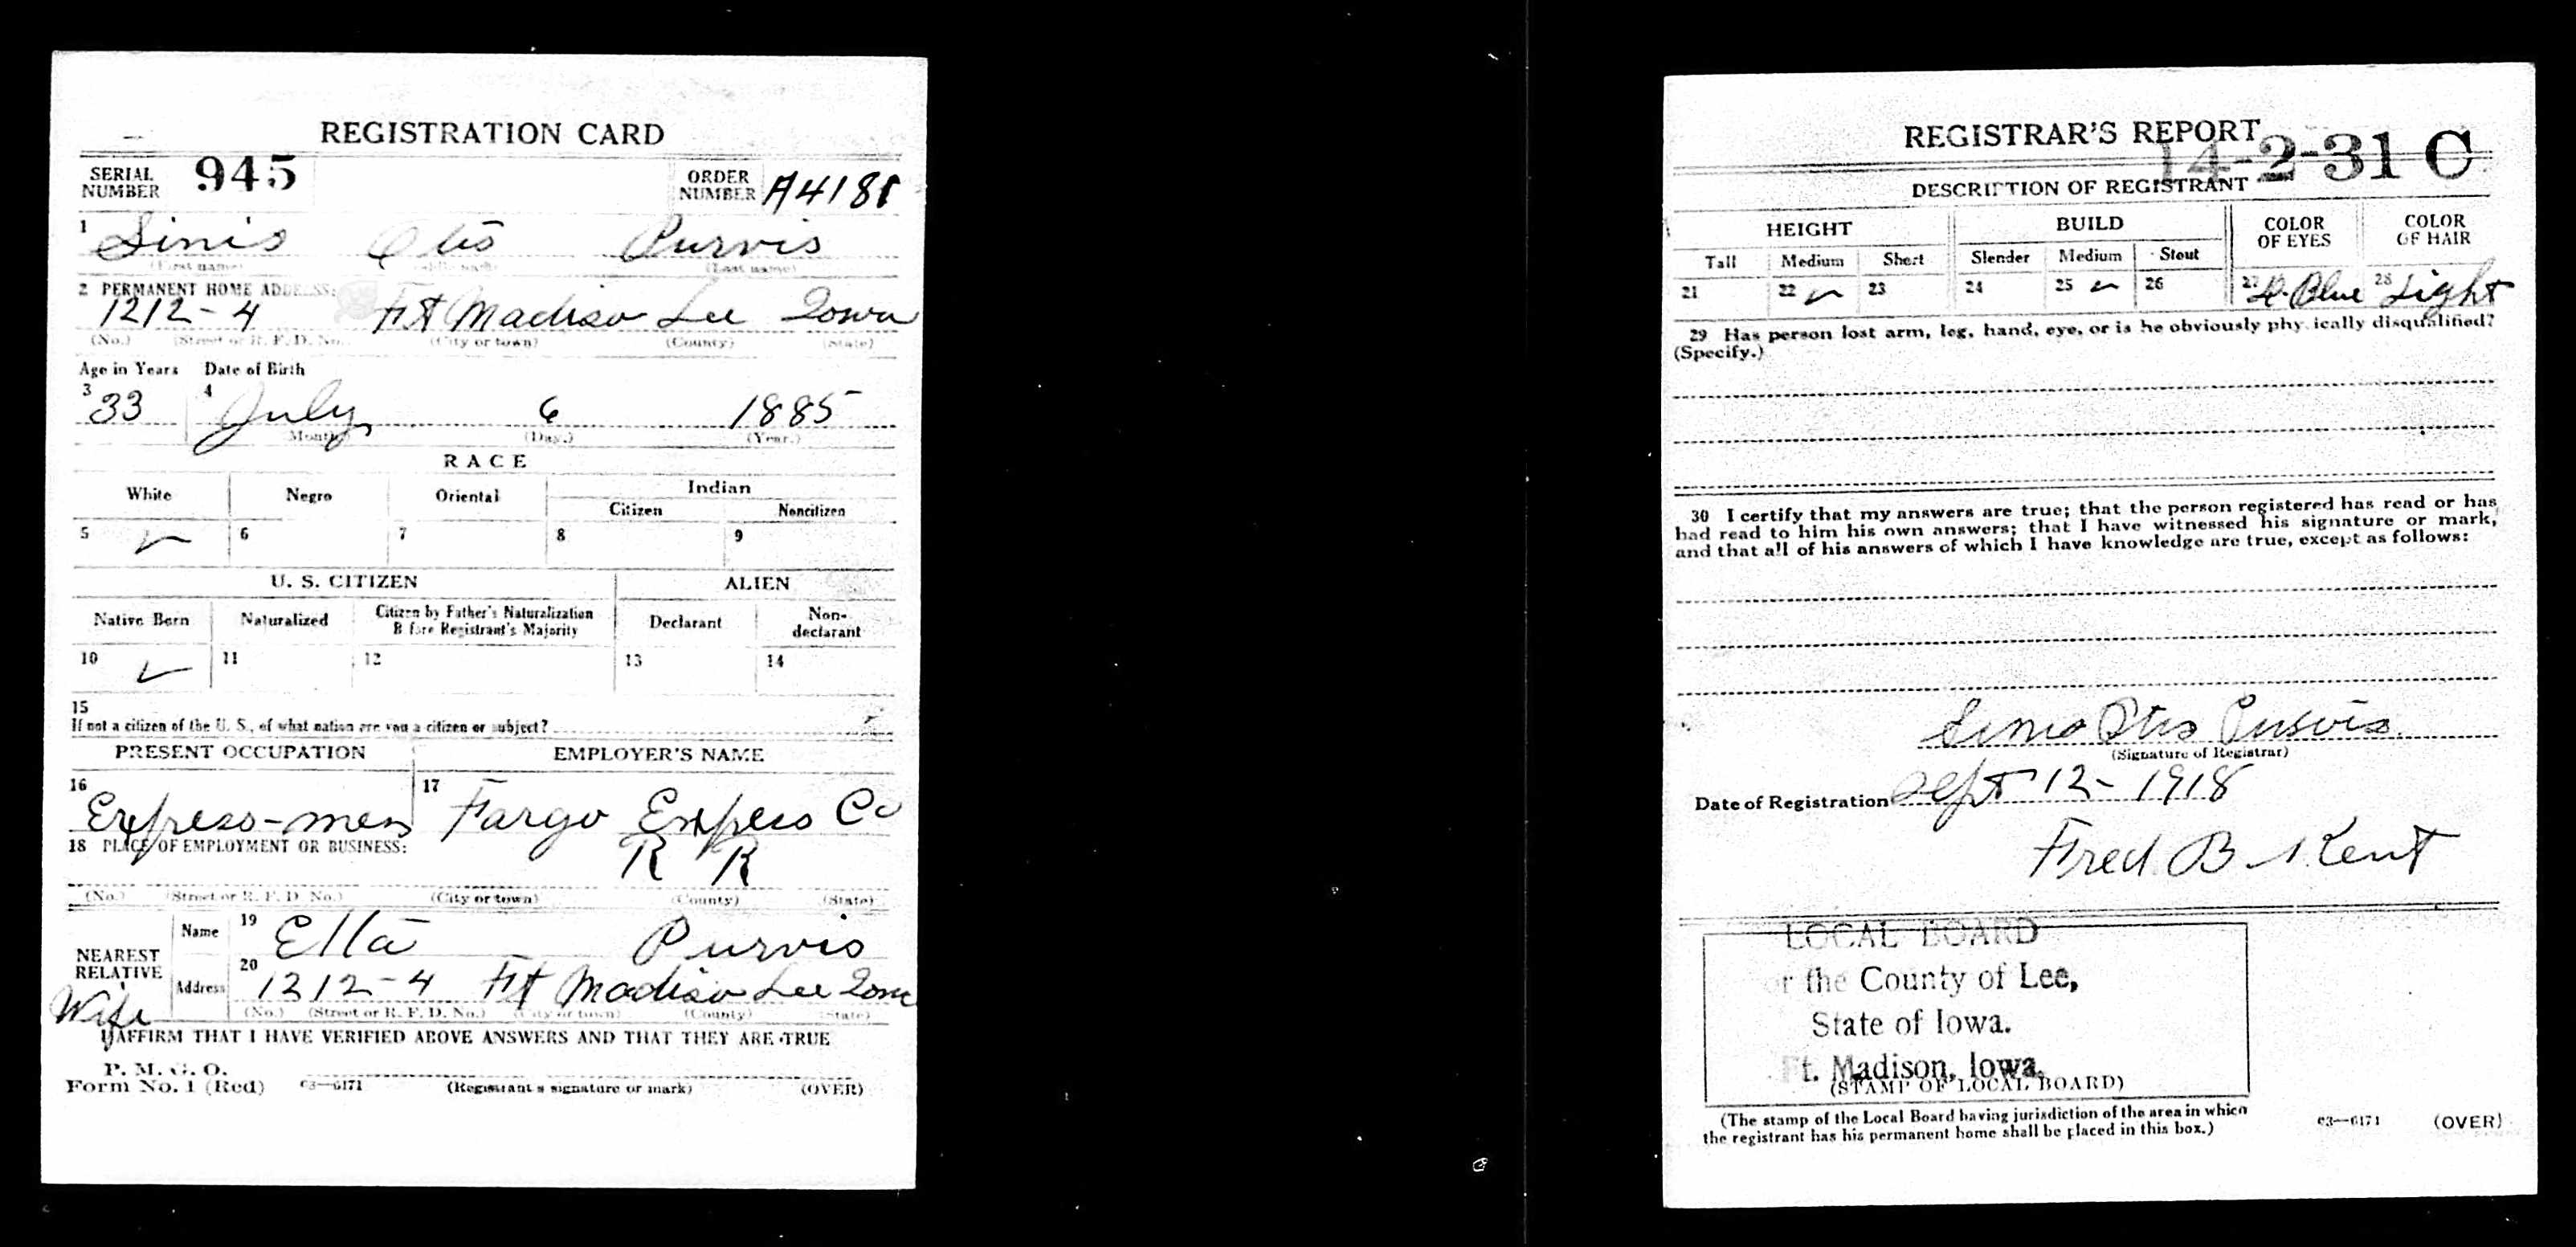 REGISTRATION CARD
SERIAL NUMBER 945 ORDER NUMBER A4181
1 Sinis Otis Purvis
(First name) (Middle name) (Last name)
2 PERMANENT HOME ADDRESS:
1212-4 Ft Madiso Lee Iowa
(No.) (Street or R. F. D. No.) (City or town) (County) (State)
Age in Years Date of Birth
3 33 4 July 6 1885
(Month.) (Day.) (Year.)
RACE
White Negro Oriental Indian
Citizen Noncitizen
5 ✓ 6 7 8 9
U. S. CITIZEN ALIEN
Native Born Naturalized Citizen by Father's Naturalization Before Registrant's Majority Declarant Non-declarant
10 ✓ 11 12 13 14
15
If not a citizen of the U. S., of what nation are you a citizen or subject?
PRESENT OCCUPATION EMPLOYER'S NAME
16 Express-men 17 Fargo Express Co
18 PLACE OF EMPLOYMENT OR BUSINESS: R R
(No.) (Street or R. F. D. No.) (City or town) (County) (State)
NEAREST RELATIVE Name 19 Ella Purvis
Wife Address 20 1212-4 Ft Madiso Lee Iowa
(No.) (Street or R. F. D. No.) (City or town) (County) (State)
I AFFIRM THAT I HAVE VERIFIED ABOVE ANSWERS AND THAT THEY ARE TRUE
P. M. G. O.
Form No. 1 (Red) c3—6171 (Registrant's signature or mark) (OVER)
REGISTRAR'S REPORT
14-2-31 C
DESCRIPTION OF REGISTRANT
HEIGHT BUILD COLOR OF EYES COLOR OF HAIR
Tall Medium Short Slender Medium Stout
21 22 ✓ 23 24 25 ✓ 26 27 Blue 28 Light
29 Has person lost arm, leg, hand, eye, or is he obviously physically disqualified?
(Specify.)
30 I certify that my answers are true; that the person registered has read or has
had read to him his own answers; that I have witnessed his signature or mark,
and that all of his answers of which I have knowledge are true, except as follows:
Sinis Otis Purvis
(Signature of Registrar)
Date of Registration Sept 12-1918
Fred B Kent
LOCAL BOARD
or the County of Lee,
State of Iowa.
Ft. Madison, Iowa.
(STAMP OF LOCAL BOARD)
(The stamp of the Local Board having jurisdiction of the area in which
the registrant has his permanent home shall be placed in this box.)
c3—6171 (OVER)